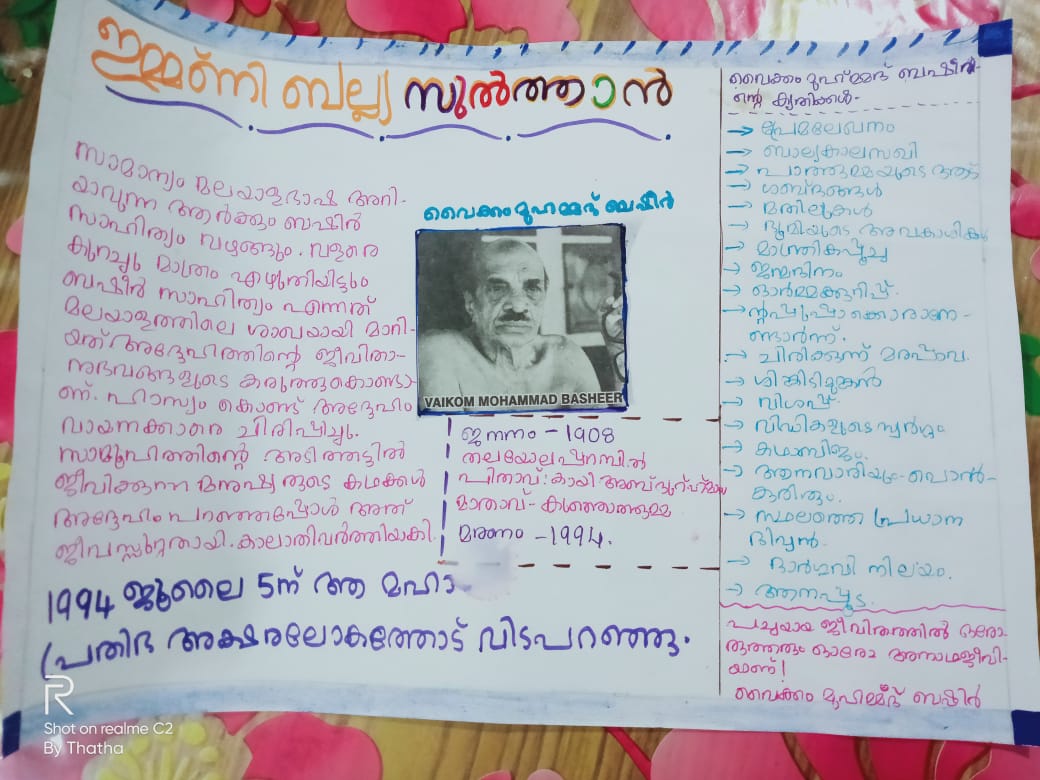 ഇമ്മ്ണി ബല്ല്യ സുൽത്താൻ
സാമാന്യം മലയാളഭാഷ അറി-
യാവുന്ന ആർക്കും ബഷീർ
സാഹിത്യം വഴങ്ങും. വളരെ
കുറച്ചു മാത്രം എഴുതിയിട്ടും
ബഷീർ സാഹിത്യം എന്നത്
മലയാളത്തിലെ ശാഖയായി മാറി-
യത് അദ്ദേഹത്തിന്റെ ജീവിതാ-
നുഭവങ്ങളുടെ കരുത്തുകൊണ്ടാ-
ണ്. ഹാസ്യം കൊണ്ട് അദ്ദേഹം
വായനക്കാരെ ചിരിപ്പിച്ചു.
സമൂഹത്തിന്റെ അടിത്തട്ടിൽ
ജീവിക്കുന്ന മനുഷ്യരുടെ കഥകൾ
അദ്ദേഹം പറഞ്ഞപ്പോൾ അത്
ജീവസ്സുറ്റതായി. കാലാതിവർത്തിയാകി.
1994 ജൂലൈ 5ന് ആ മഹാ
പ്രതിഭ അക്ഷരലോകത്തോട് വിടപറഞ്ഞു.
വൈക്കം മുഹമ്മദ് ബഷീർ
VAIKOM MOHAMMAD BASHEER
ജനനം - 1908
തലയോലപ്പറമ്പിൽ
പിതാവ്: കായി അബ്ദുറഹ്മാൻ
മാതാവ് - കുഞ്ഞാത്തുമ്മ
മരണം - 1994.
വൈക്കം മുഹമ്മദ് ബഷീറി-
ന്റെ കൃതികൾ-
→ പ്രേമലേഖനം
→ ബാല്യകാലസഖി
→ പാത്തുമ്മയുടെ ആട്
→ ശബ്ദങ്ങൾ
→ മതിലുകൾ
→ ഭൂമിയുടെ അവകാശികൾ
→ മാന്ത്രികപ്പൂച്ച
→ ജന്മദിനം
→ ഓർമ്മക്കുറിപ്പ്.
→ ന്റുപ്പുപ്പാക്കൊരാനേ-
ണ്ടാർന്ന്.
→ ചിരിക്കുന്ന മരപ്പാവ.
→ ശിങ്കിടിമുങ്കൻ
→ വിശപ്പ്
→ വിഡ്ഢികളുടെ സ്വർഗ്ഗം
→ കഥാബീജം.
→ ആനവാരിയും പൊൻ-
കുരിശും.
→ സ്ഥലത്തെ പ്രധാന
ദിവ്യൻ.
→ ഭാർഗവി നിലയം.
→ ആനപ്പൂട.
പച്ചയായ ജീവിതത്തിൽ ഓരോ-
രുത്തരും ഓരോ അനാഥജീവി-
യാണ്!
വൈക്കം മുഹമ്മദ് ബഷീർ
R
Shot on realme C2
By Thatha